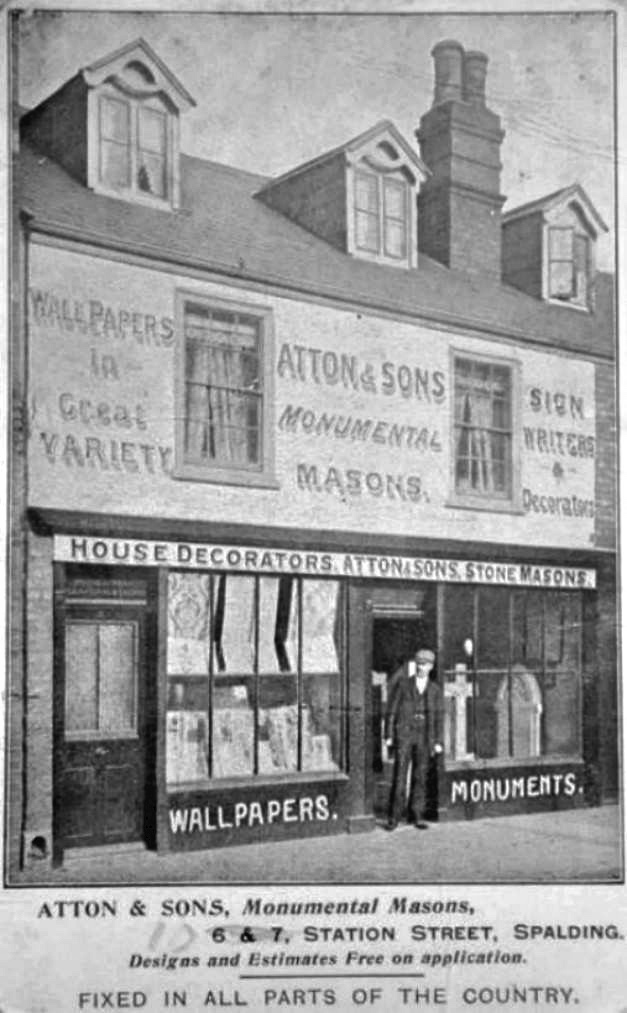 WALLPAPERS
in
Great
VARIETY
ATTON & SONS
MONUMENTAL
MASONS.
SIGN
WRITERS
&
Decorators
HOUSE DECORATORS. ATTON & SONS. STONE MASONS.
WALLPAPERS.
MONUMENTS.
ATTON & SONS, Monumental Masons,
6 & 7, STATION STREET, SPALDING.
Designs and Estimates Free on application.
FIXED IN ALL PARTS OF THE COUNTRY.